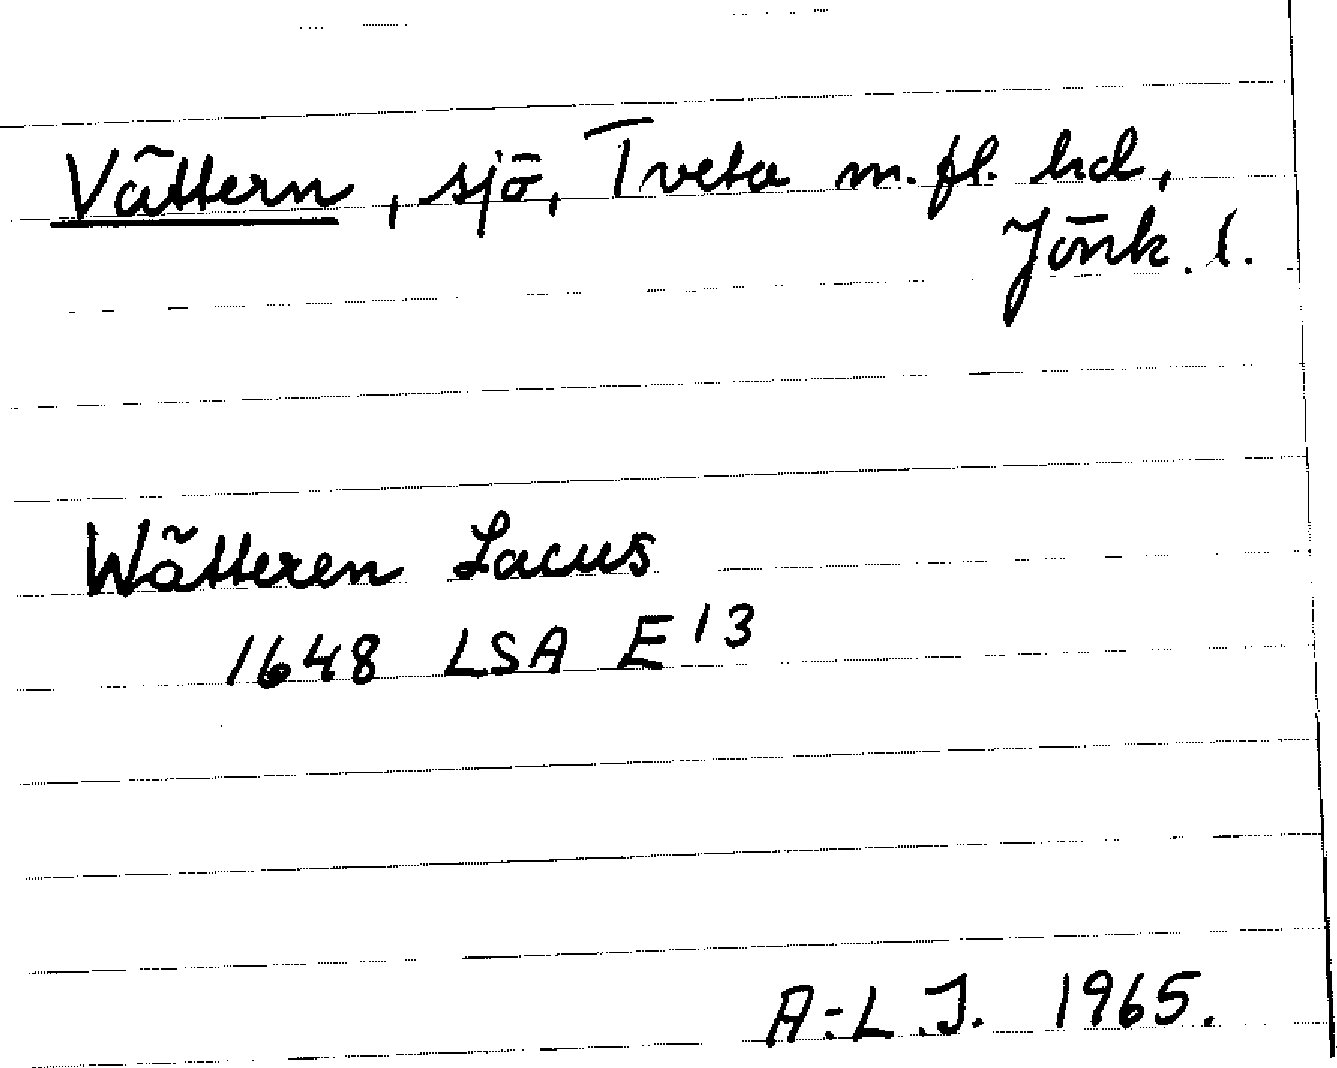 Vättern, sjö, Tveta m.fl. hd,
Jönk. l.
Wätteren Lacus
1648 LSA E 13
A:L.J. 1965.